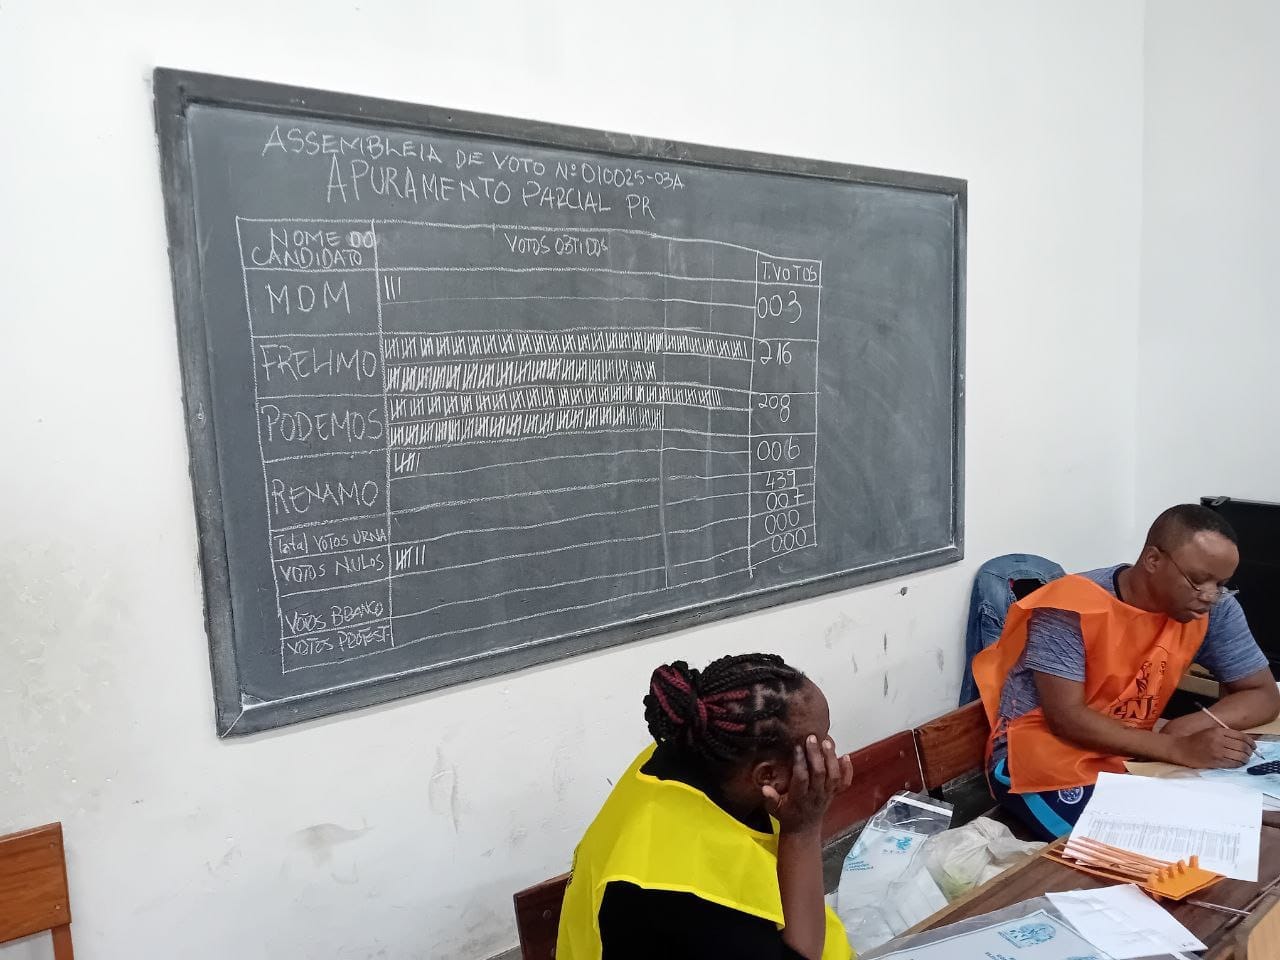 ASSEMBLEIA DE VOTO Nº 010025-03A
APURAMENTO PARCIAL PR
NOME DO CANDIDATO VOTOS OBTIDOS T.VOTOS
MDM 003
FRELIMO 216
PODEMOS 208
RENAMO 006
Total VOTOS URNA 439
VOTOS NULOS 007
VOTOS BRANCO 000
VOTOS PROTEST. 000